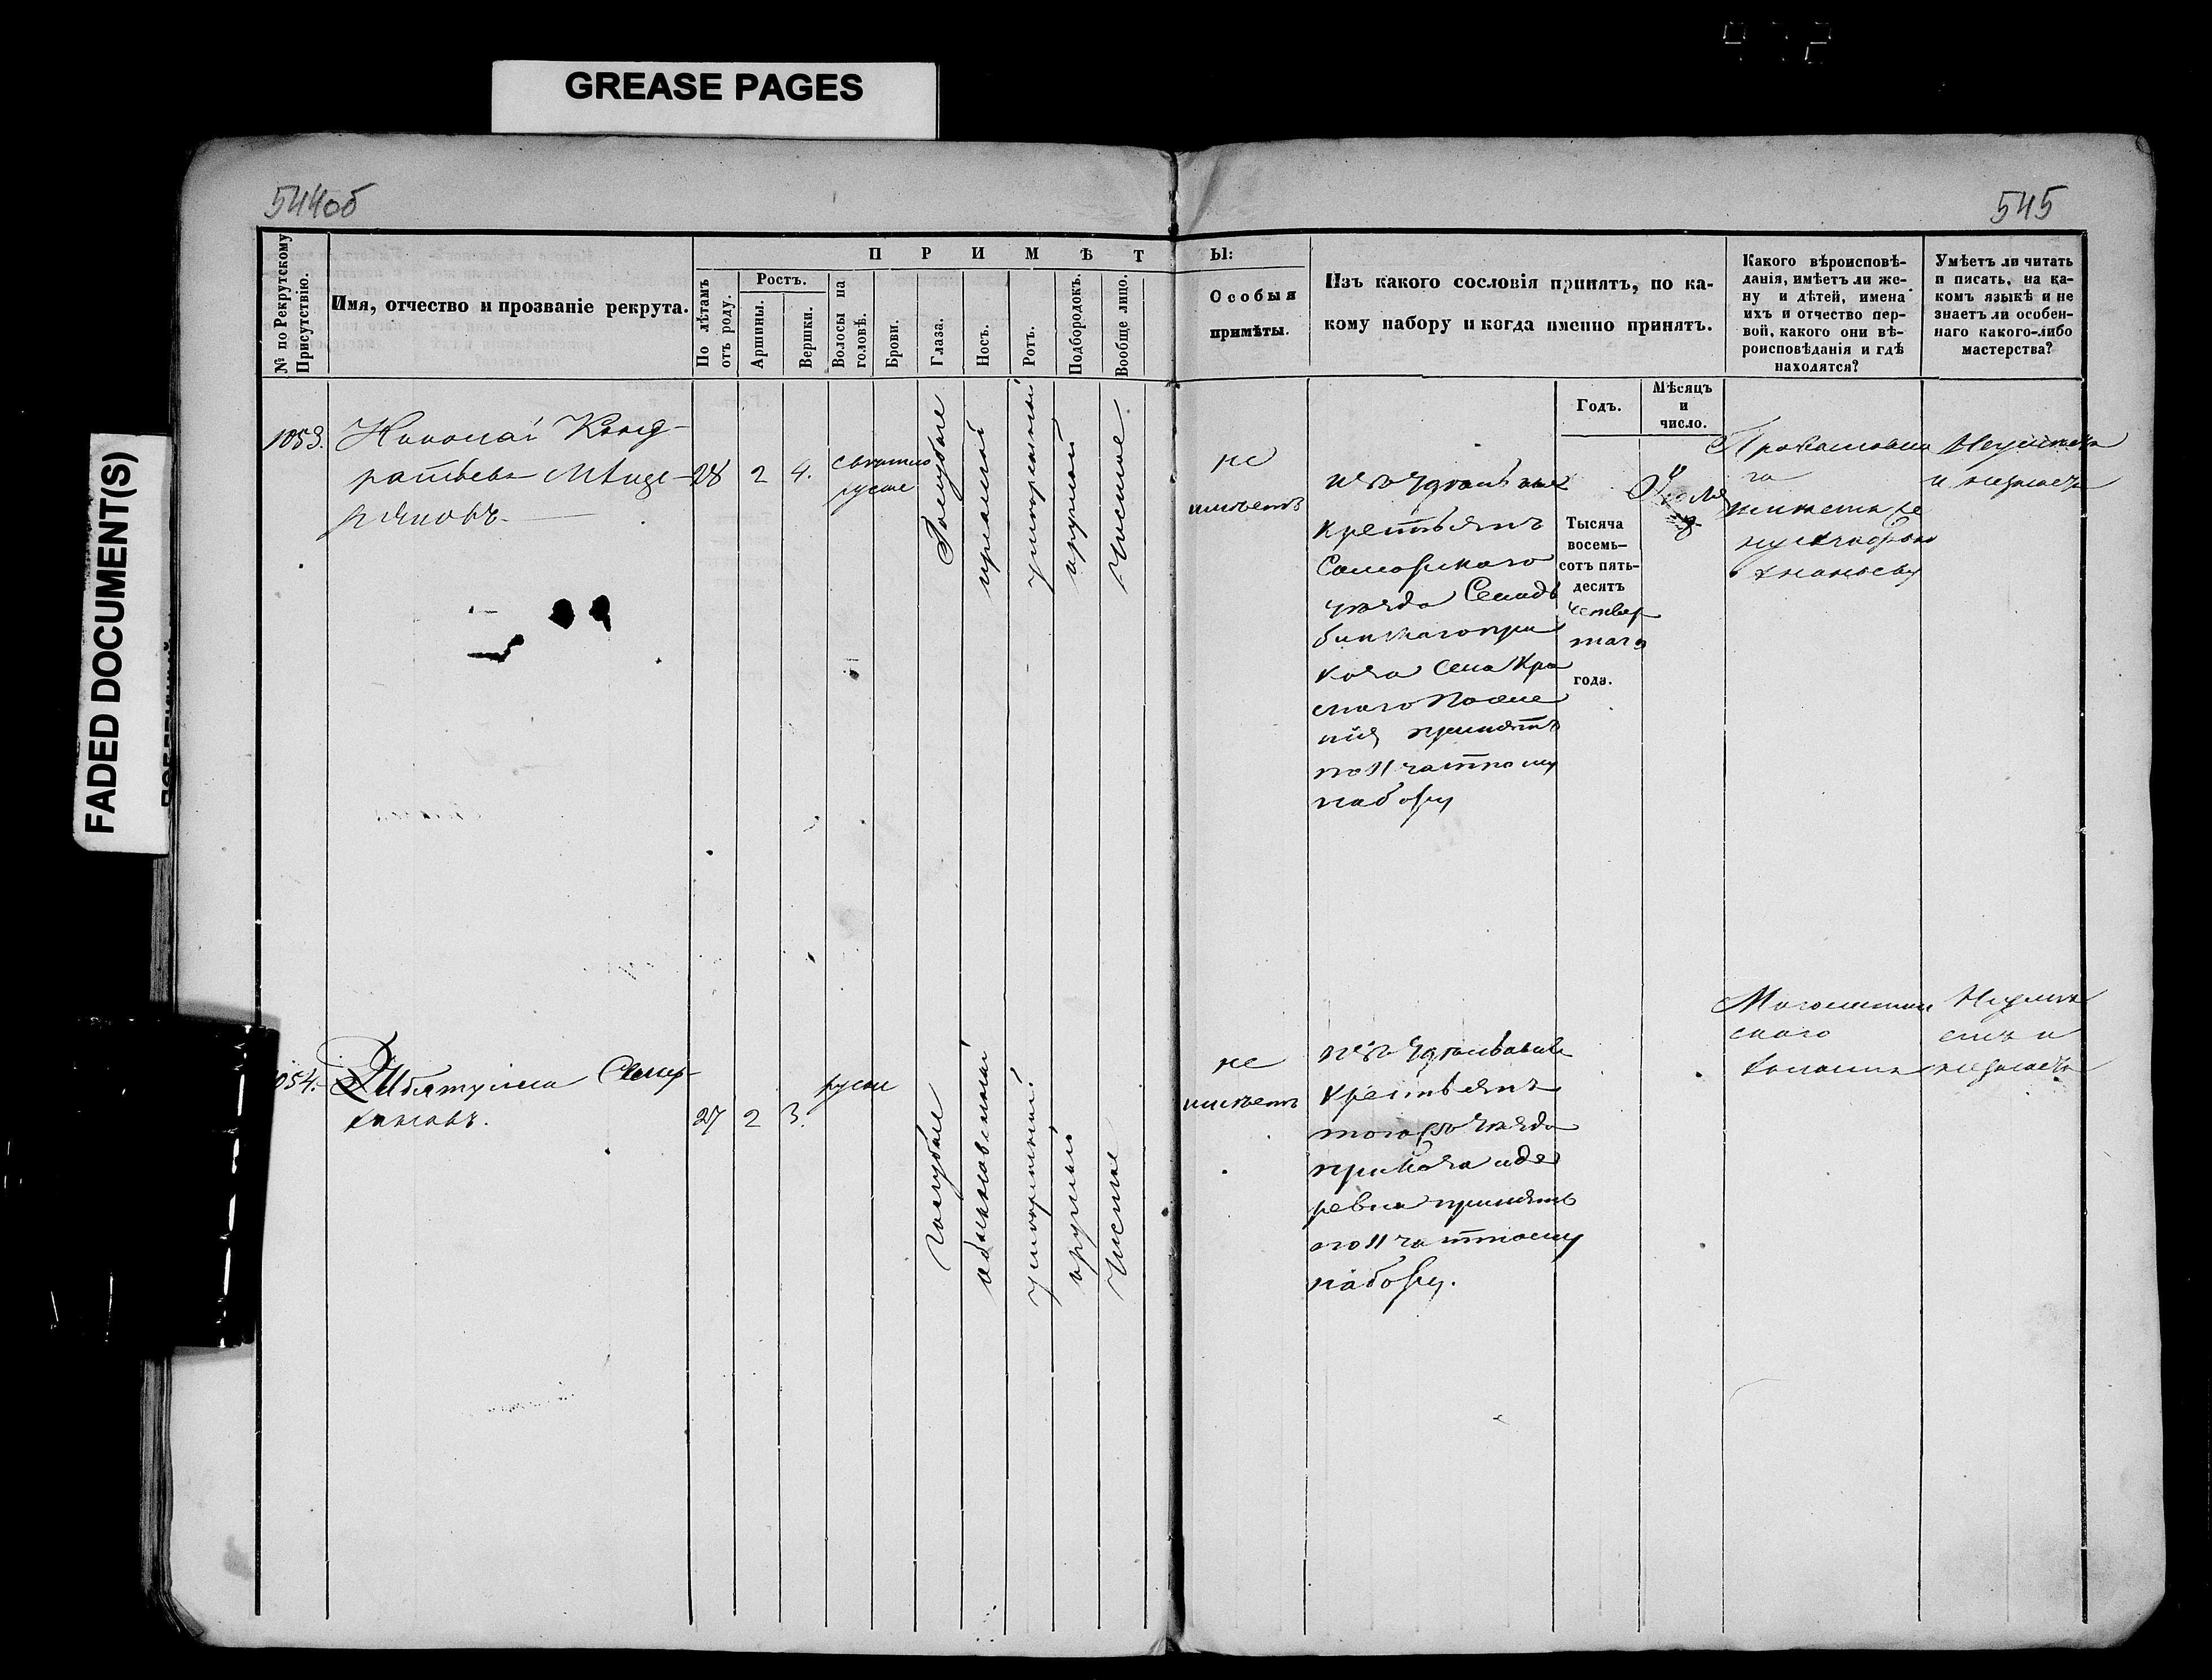 GREASE PAGES
FADED DOCUMENT(S)
544об
545
№ по Рекрутскому Присутствію.
Имя, отчество и прозваніе рекрута.
ПРИМѢТЫ:
По лѣтамъ отъ роду.
Ростъ.
Аршины.
Вершки.
Волосы на головѣ.
Брови.
Глаза.
Носъ.
Ротъ.
Подбородокъ.
Вообще лицо.
Особыя
примѣты.
Изъ какого сословія принятъ, по ка-
кому набору и когда именно принятъ.
Какого вѣроисповѣ-
данія, имѣетъ ли же-
ну и дѣтей, имена
ихъ и отчество пер-
вой, какого они вѣ-
роисповѣданія и гдѣ
находятся?
Умѣетъ ли читать
и писать, на ка-
комъ языкѣ и не
знаетъ ли особен-
наго какого-либо
мастерства?
Годъ.
Мѣсяцъ
и
число.
1053.
Николай Конд-
ратьевъ
28
2
4.
свѣтло
русые
Голубые
прямой
умѣренный
круглый
Чистое
не
имѣетъ
изъ удѣльныхъ
крестьянъ
Самарскаго
уѣзда
при
каза села Кра
снаго Поселе
нія принятъ
по 11 частному
набору
Тысяча
восемь-
сотъ пять-
десятъ
четвер
таго
года.
Неумѣетъ
и незнаетъ
1054.
27
2
3.
русые
голубые
обыкновенный
умѣренный
круглый
Чистое
не
имѣетъ
изъ удѣльныхъ
крестьянъ
того же уѣзда
приказа и де
ревни принятъ
по 11 частному
набору.
Магометан
скаго
холостъ
Неумѣ
етъ и
незнаетъ